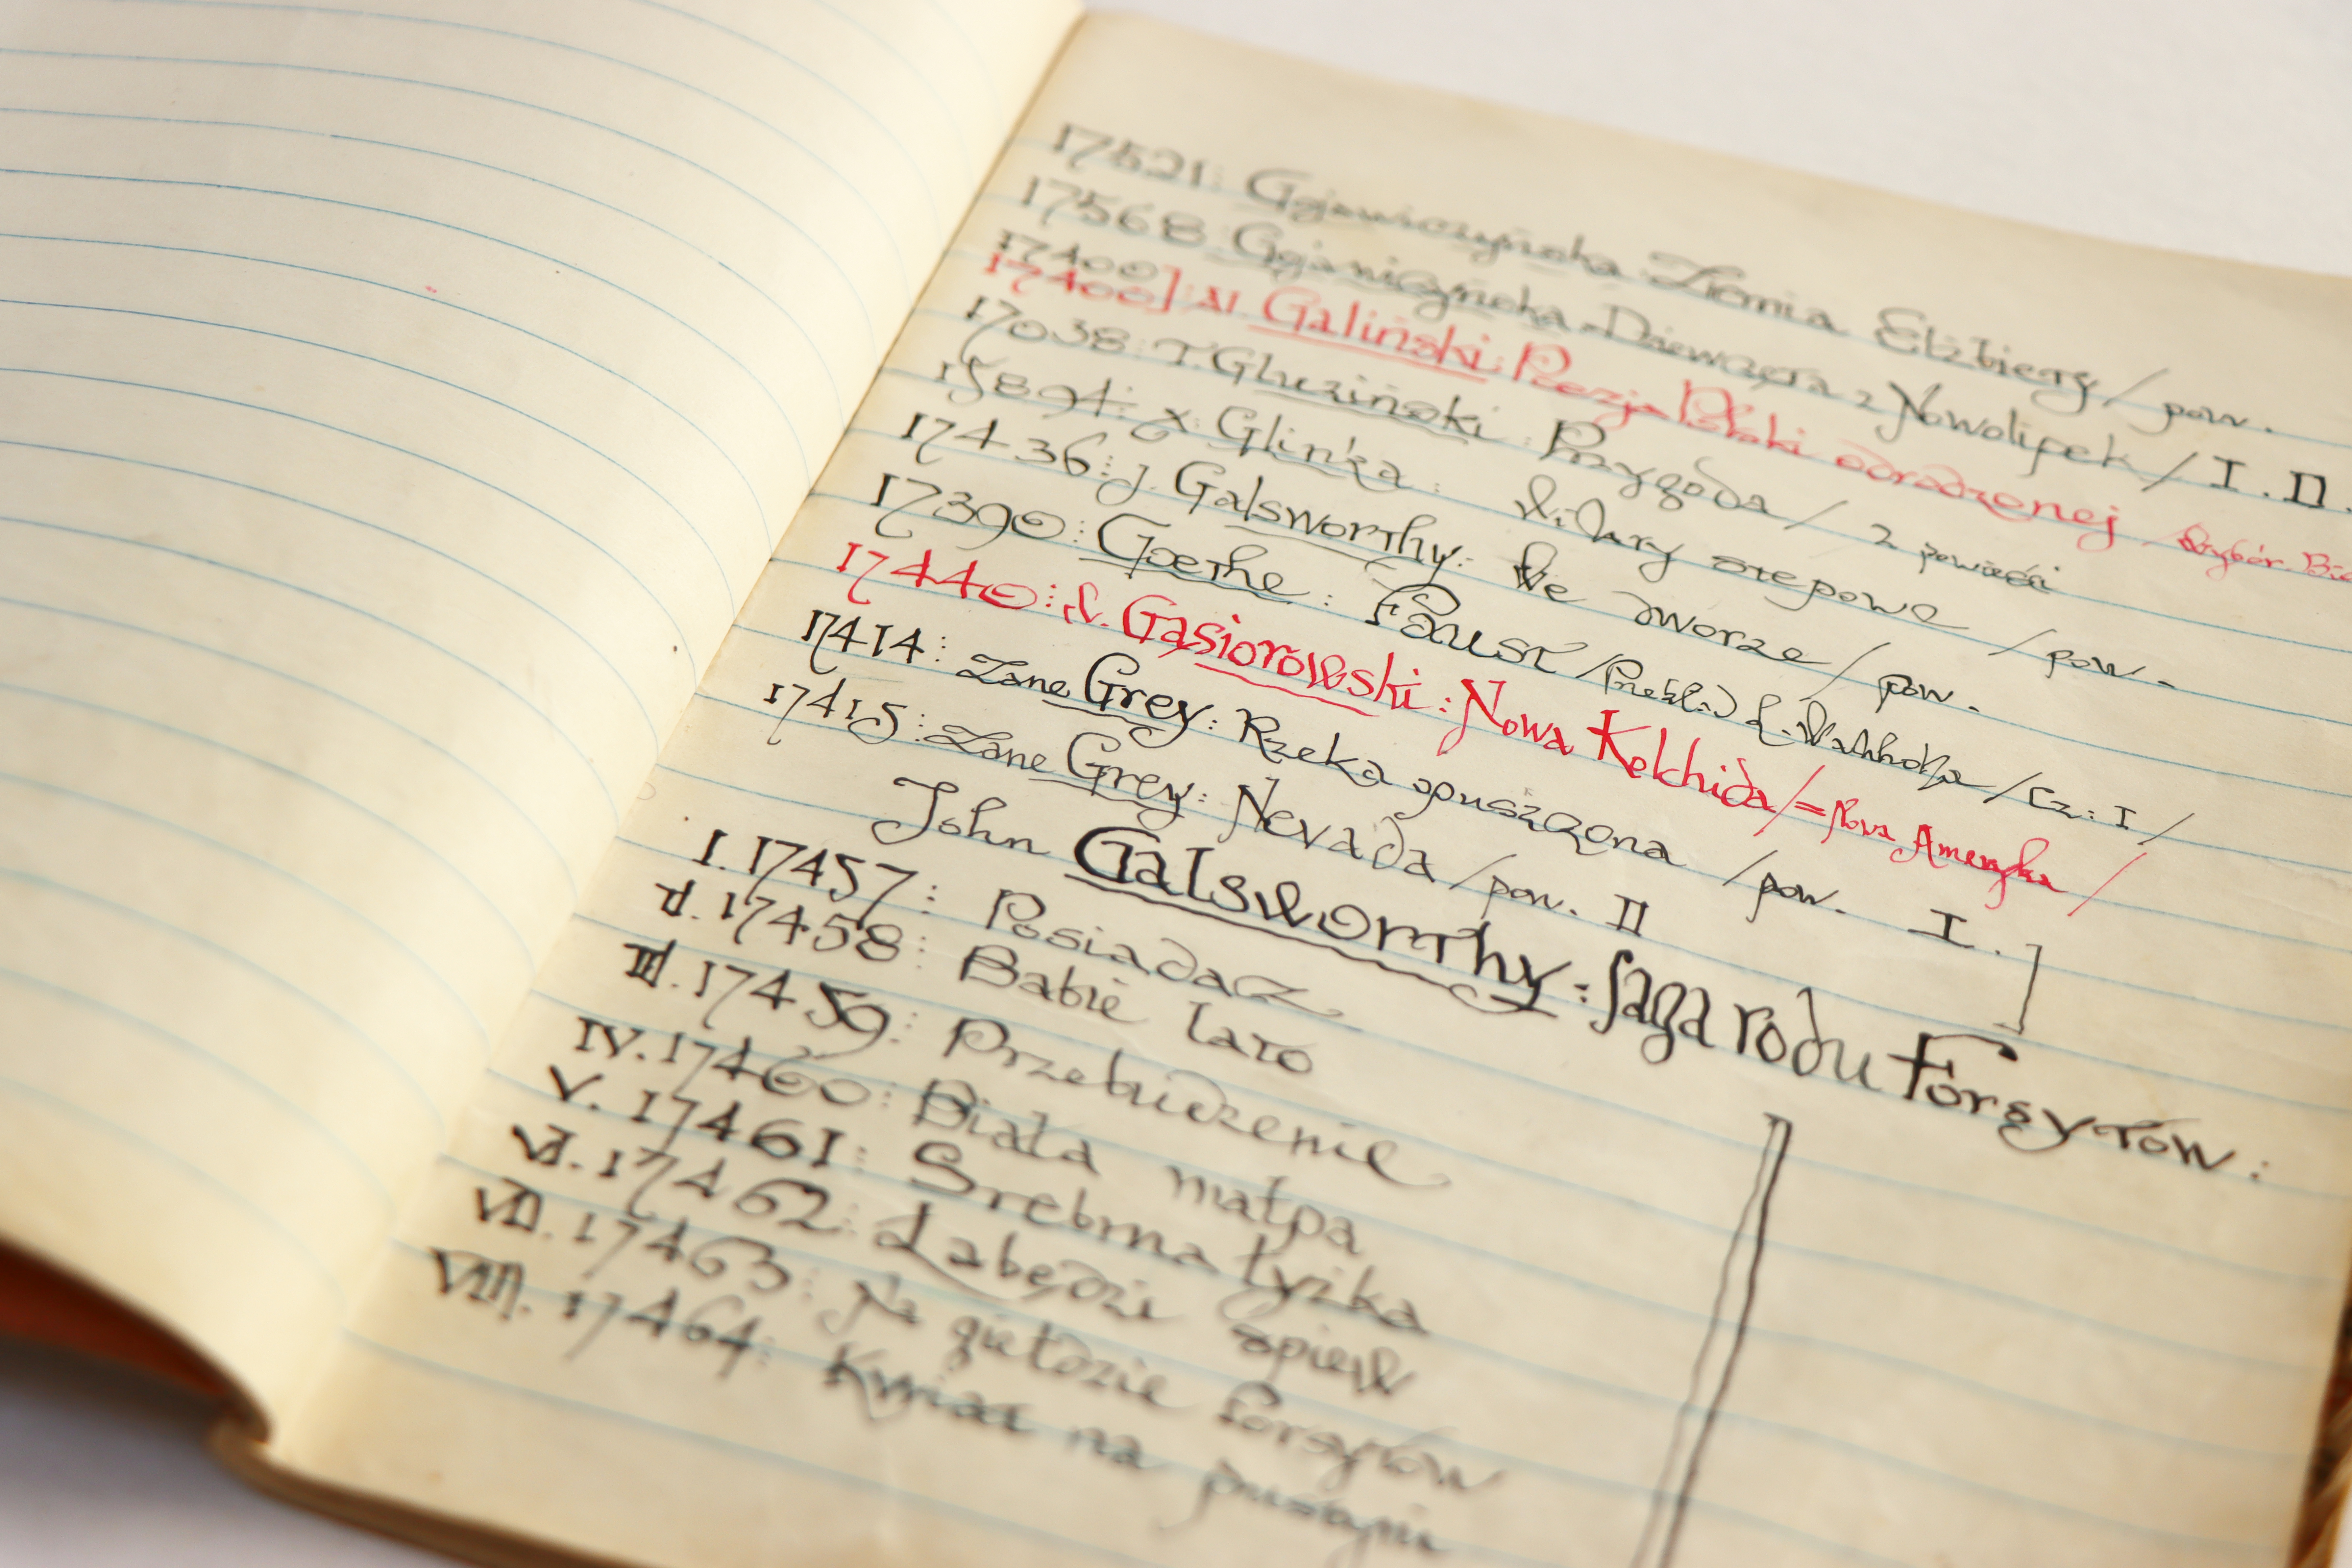 17521: Gojawiczyńska Ziemia Elżbiety / pow.
17568 Gojawiczyńska - Dziewczęta z Nowolipek / I. II.
17400
17400] Al Galiński: Poezja Polski odrodzonej / Wybór.
17038: T. Głuziński: Przygoda / 2 powieści
15894: X. Glinka: stepowe / pow.
17436: J. Galsworthy: We dworze / pow.
17390: Goethe: Faust / Przekład E. / Cz: I /
17440: W. Gąsiorowski: Nowa Kolchida / = Nowa Ameryka /
17414: Zane Grey: Rzeka opuszczona / pow. I.]
17415: Zane Grey: Nevada / pow. II
John Galsworthy: Saga rodu Forsytów:
I. 17457: Posiadacz
II. 17458: Babie lato
III. 17459: Przebudzenie
IV. 17460: Biała małpa
V. 17461: Srebrna łyżka
VI. 17462: Łabędzi śpiew
VII. 17463: Na giełdzie Forsytów
VIII. 17464: Kwiat na pustyni